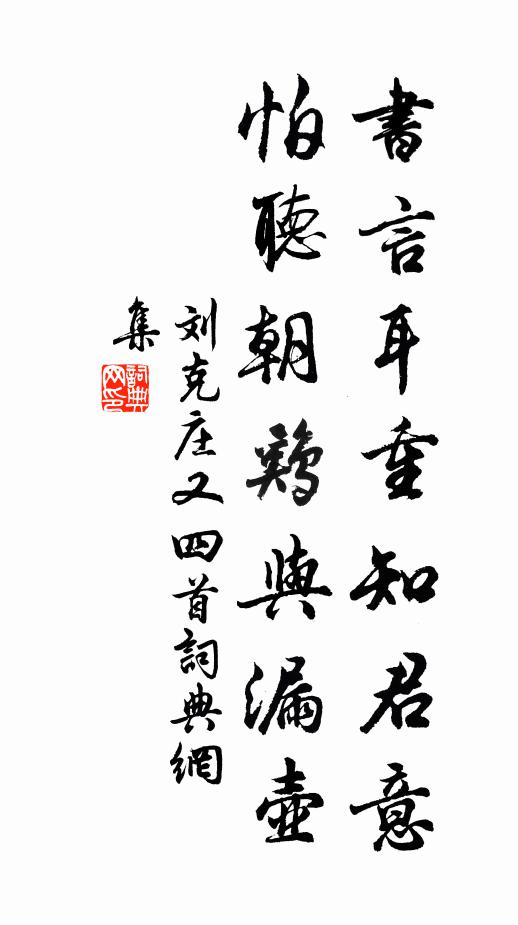 書言耳重知君意
怕聽朝鷄與漏壺
刘克庄又四首詞典網
集
詞典网印